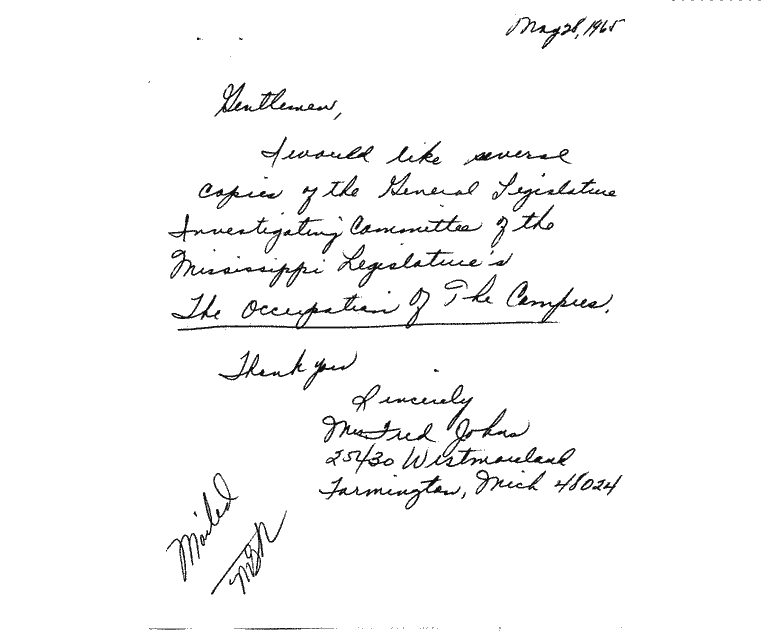 May 28, 1965
Gentlemen,
I would like several
copies of the General Legislature
Investigating Committee of the
Mississippi Legislature's
The Occupation Of The Campus.
Thank you
Sincerely
Mrs Fred Johns
25430 Westmoreland
Farmington, Mich 48024
Mailed